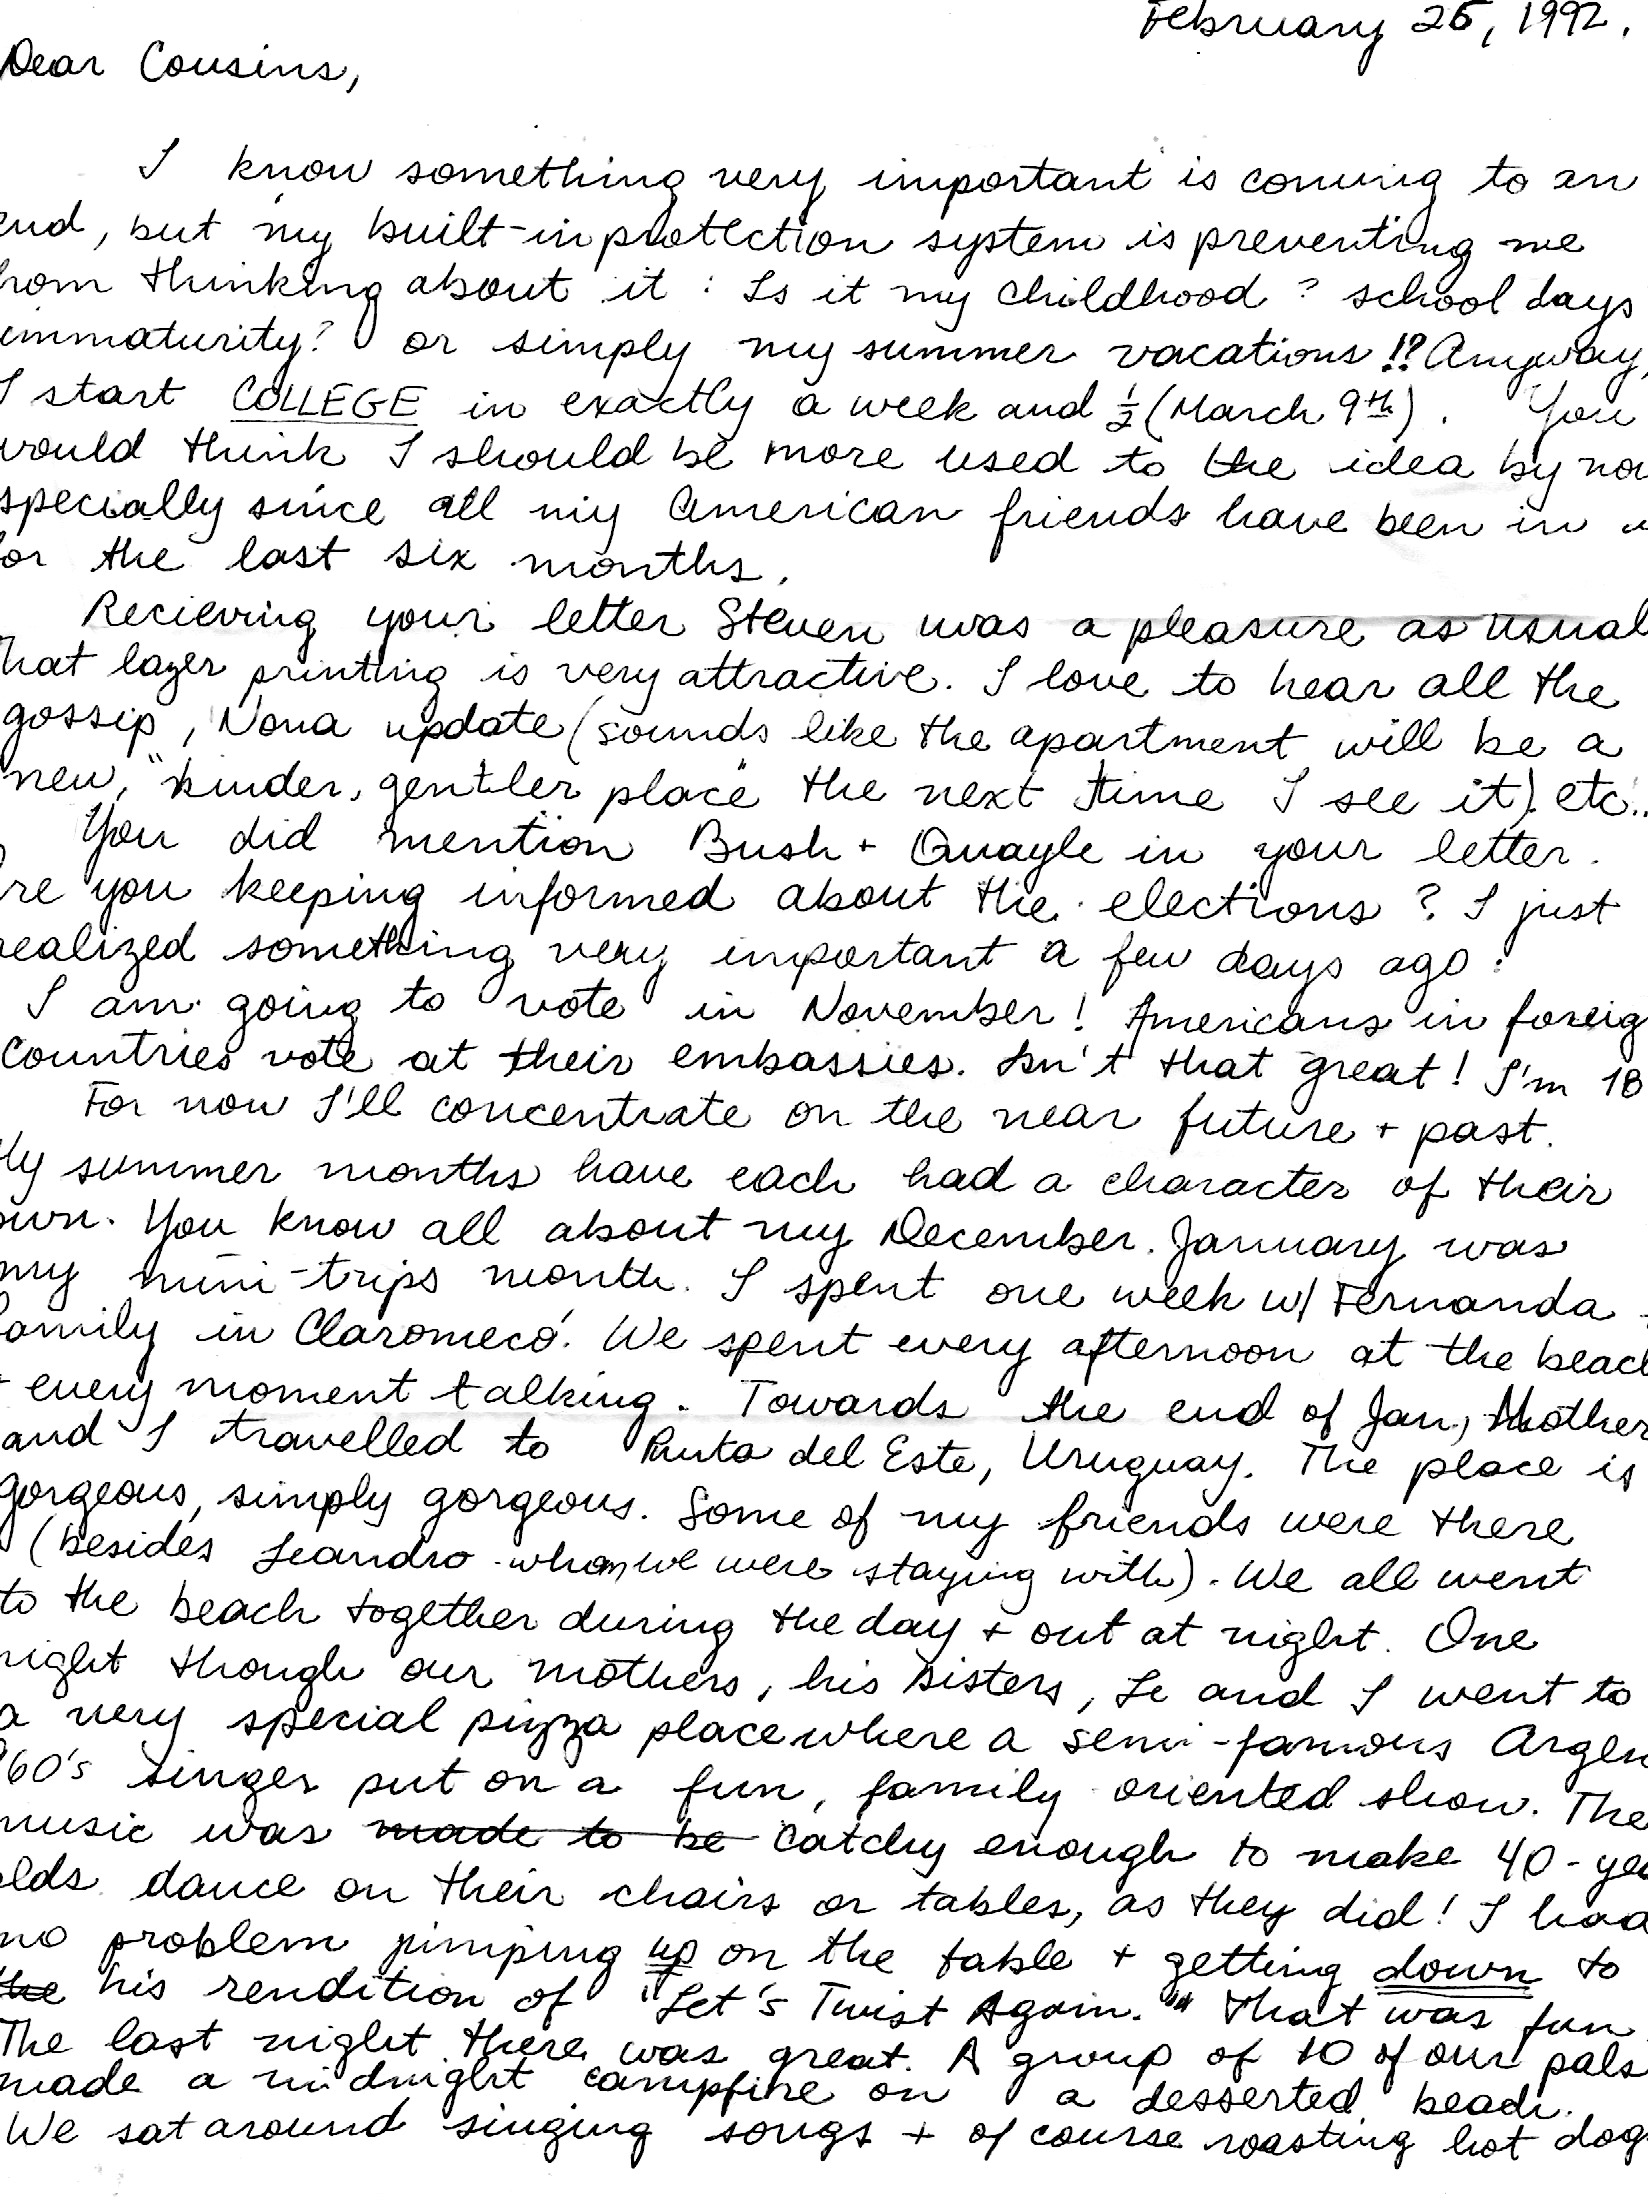 February 25, 1992.
Dear Cousins,
I know something very important is coming to an
end, but my built-in protection system is preventing me
from thinking about it : Is it my childhood ? school days
immaturity? or simply my summer vacations !? Anyway,
I start COLLEGE in exactly a week and ½ (March 9th). You
would think I should be more used to the idea by now
specially since all my American friends have been in
for the last six months.
Recieving your letter Steven was a pleasure as usual
That lazer printing is very attractive. I love to hear all the
gossip, Nona update (sounds like the apartment will be a
new, "kinder, gentler place" the next time I see it). etc..
You did mention Bush + Quayle in your letter.
Are you keeping informed about the elections ? I just
realized something very important a few days ago :
I am going to vote in November! Americans in foreig
countries vote at their embassies. Isn't that great! I'm 18
For now I'll concentrate on the near future + past.
My summer months have each had a character of their
own. You know all about my December. January was
my mini-trips month. I spent one week w/ Fernanda +
family in Claromecó. We spent every afternoon at the beach
+ every moment talking. Towards the end of Jan, Mother
and I travelled to Punta del Este, Uruguay. The place is
gorgeous, simply gorgeous. Some of my friends were there
(besides Leandro whom we were staying with). We all went
to the beach together during the day + out at night. One
night though our mothers, his sisters, Le and I went to
a very special pizza place where a semi-famous Argen
'60's singer put on a fun, family oriented show. The
music was made to be catchy enough to make 40-yea
olds dance on their chairs or tables, as they did! I had
no problem jumping up on the table + getting down to
the his rendition of "Let's Twist Again." That was fun
The last night there was great. A group of 10 of our pals
made a midnight campfire on a desserted beach.
We sat around singing songs + of course roasting hot dog